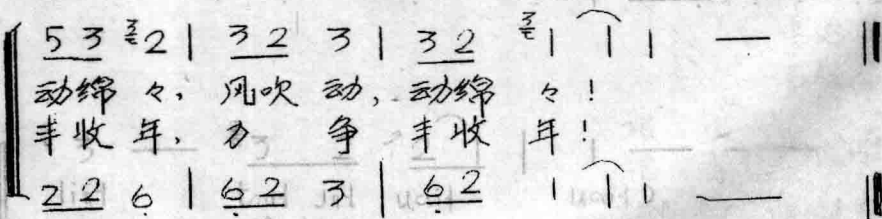 5 3 3 2 | 3 2 3 | 3 2 3 1 | 1 — ‖
动绵々，风吹动，动绵々！
丰收年，力争丰收年！
2 2 6 | 6 2 3 | 6 2 1 | 1 — ‖